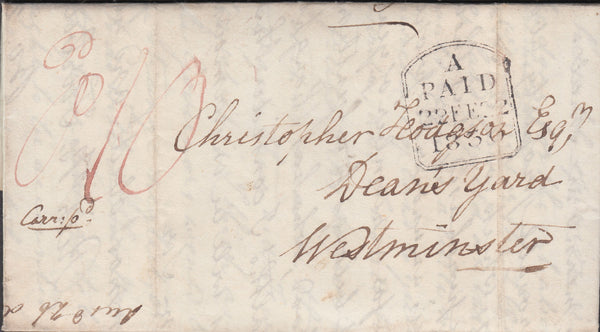 Pd 10
A
PAID
22 FE 22
183
Christopher Hodgson Esqr
Dean's Yard
Westminster
Carr: pd